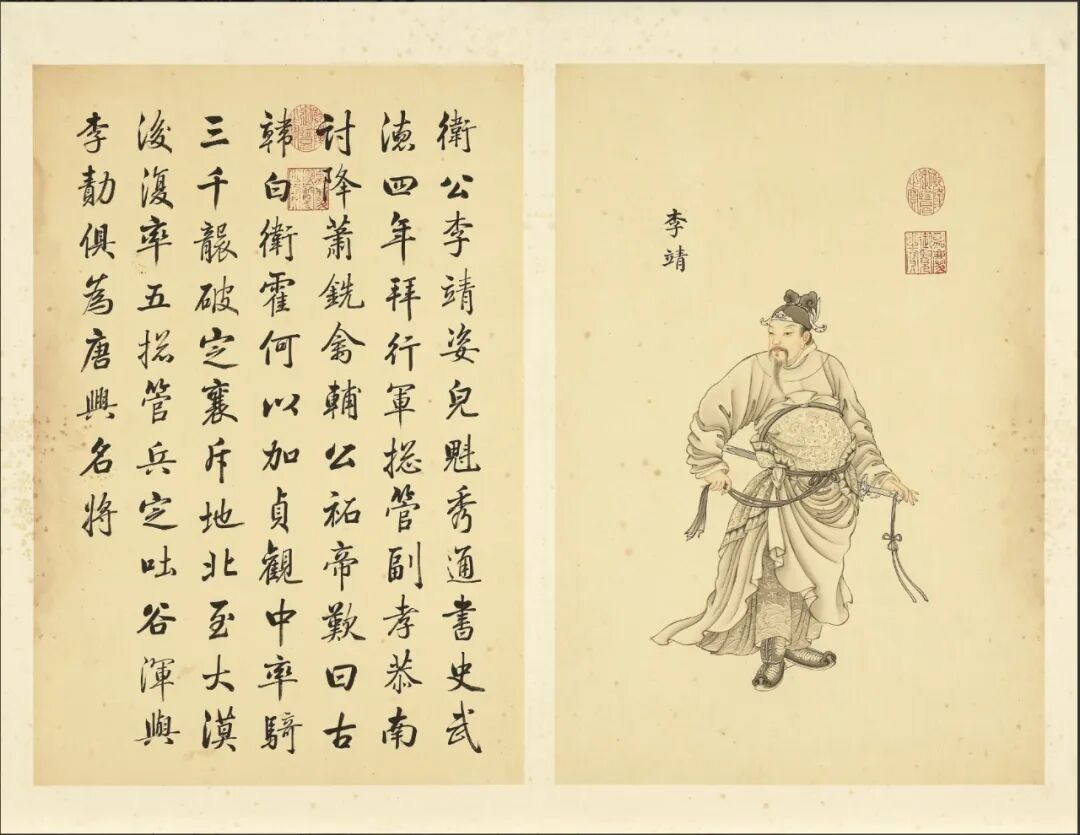 李靖
衛公李靖姿皃魁秀通書史武
徳四年拜行軍揔管副孝恭南
討降蕭銑禽輔公祏帝歎曰古
韓白衛霍何以加貞觀中率騎
三千襲破定襄斥地北至大漠
後復率五揔管兵定吐谷渾與
李勣俱為唐興名將